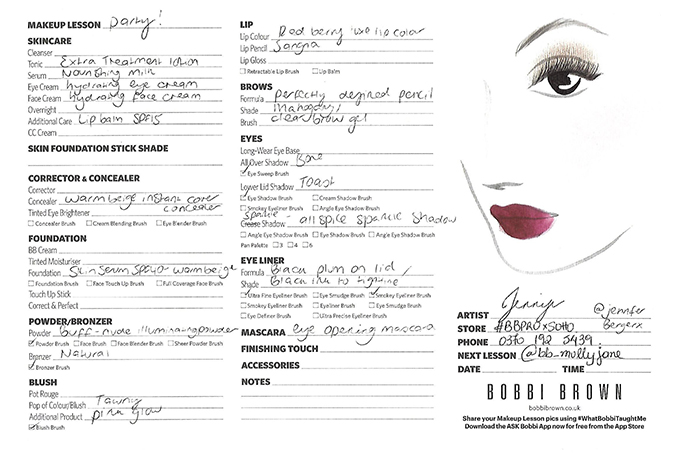 MAKEUP LESSON party!
SKINCARE
Cleanser
Tonic Extra Treatment lotion
Serum Nourishing milk
Eye Cream hydrating eye cream
Face Cream hydrating face cream
Overnight
Additional Care Lip balm SPF15
CC Cream
SKIN FOUNDATION STICK SHADE
CORRECTOR & CONCEALER
Corrector
Concealer warm beige instant cover concealer
Tinted Eye Brightener
Concealer Brush Cream Blending Brush Eye Blender Brush
FOUNDATION
BB Cream
Tinted Moisturiser
Foundation Skin Serum SPF40 - warm beige
Foundation Brush Face Touch Up Brush Full Coverage Face Brush
Touch Up Stick
Correct & Perfect
POWDER/BRONZER
Powder buff-nude illuminating powder
Powder Brush Face Brush Face Blender Brush Sheer Powder Brush
Bronzer Natural
Bronzer Brush
BLUSH
Pot Rouge
Pop of Colour/Blush Tawny
Additional Product pink glow
Blush Brush
LIP
Lip Colour Red berry luxe lip color
Lip Pencil Sangria
Lip Gloss
Retractable Lip Brush Lip Balm
BROWS
Formula perfectly defined pencil
Shade Mahogany
Brush clear brow gel
EYES
Long-Wear Eye Base
All Over Shadow Bone
Eye Sweep Brush
Lower Lid Shadow Toast
Eye Shadow Brush Cream Shadow Brush
Smokey Eyeliner Brush Angle Eye Shadow Brush
Sparkle - all spice sparkle shadow
Crease Shadow
Angle Eye Shadow Brush Eye Shadow Brush Angle Eye Shadow Brush
Pan Palette 3 4 6
EYE LINER
Formula Black plum on lid /
Shade Black ink to tightline
Ultra Fine Eyeliner Brush Eye Smudge Brush Smokey Eyeliner Brush
Smokey Eyeliner Brush Eyeliner Brush Eye Smudge Brush
Eye Definer Brush Ultra Precise Eyeliner Brush
MASCARA eye opening mascara
FINISHING TOUCH
ACCESSORIES
NOTES
ARTIST Jennifer @jennifer
STORE #BBPROxSOHO Bergerx
PHONE 0370 192 5439
NEXT LESSON @bb_mollyjane
DATE TIME
BOBBI BROWN
bobbibrown.co.uk
Share your Makeup Lesson pics using #WhatBobbiTaughtMe
Download the ASK Bobbi App now for free from the App Store